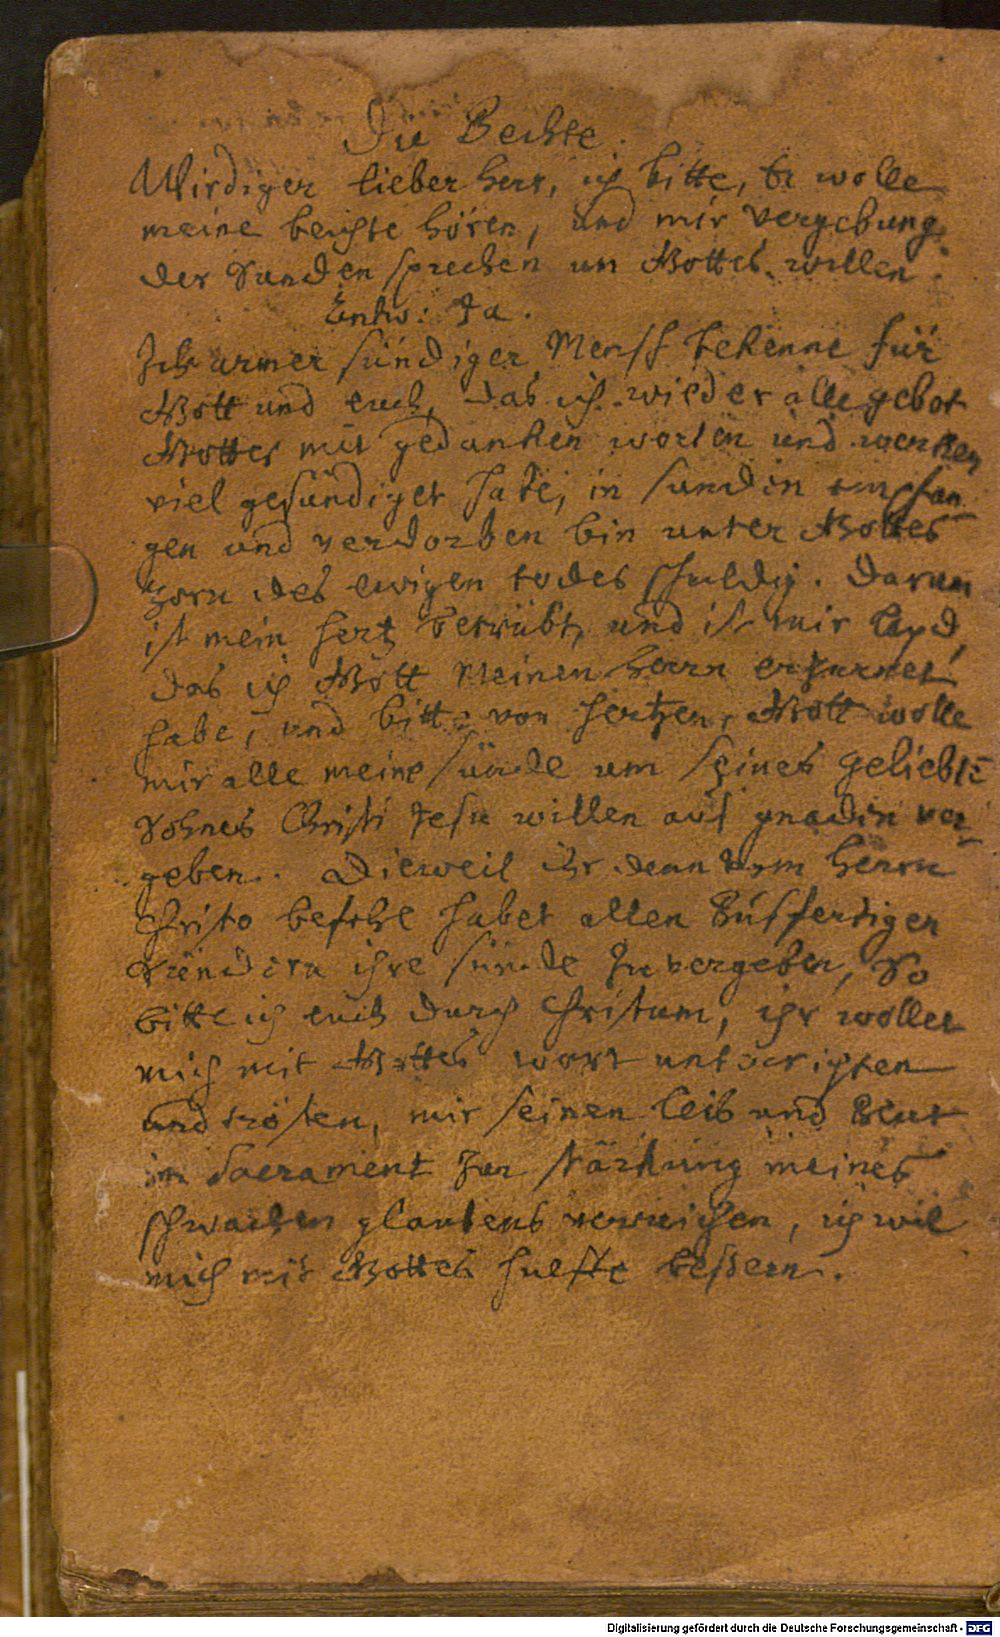 Die Beichte.
Wirdiger lieber herr, ich bitte, Er wolle
meine beichte hören, und mir vergebung
der Sunden sprechen um Gottes willen.
Antw: Ja.
Ich armer sündiger Mensch bekenne für
Gott und euch, das ich wieder alle gebot
Gottes mit gedanken worten und wercken
viel gesündiget habe, in sunden empfan
gen und verdorben bin unter Gottes
Zorn des ewigen todes schuldig. Darum
ist mein hertz betrübt, und ist mir leyd,
das ich Gott Meinen herrn erzurnet
habe, und bitte von hertzen, Gott wolle
mir alle meine sünde um seines geliebtē
Sohnes Christi Jesu willen aus gnaden ver
geben. Dieweil ihr denn vom herrn
Christo befehl habet allen bußfertigen
Sündern ihre sünde zu vergeben, So
bitte ich euch durch Christum, ihr wollet
mich mit Gottes wort unterrichten
und trösten, mir seinen leib und Blut
im Sacrament zur stärkung meines
schwachen glaubens verreichen, ich wil
mich mit Gottes huelffe beßern.
Digitalisierung gefördert durch die Deutsche Forschungsgemeinschaft - DFG